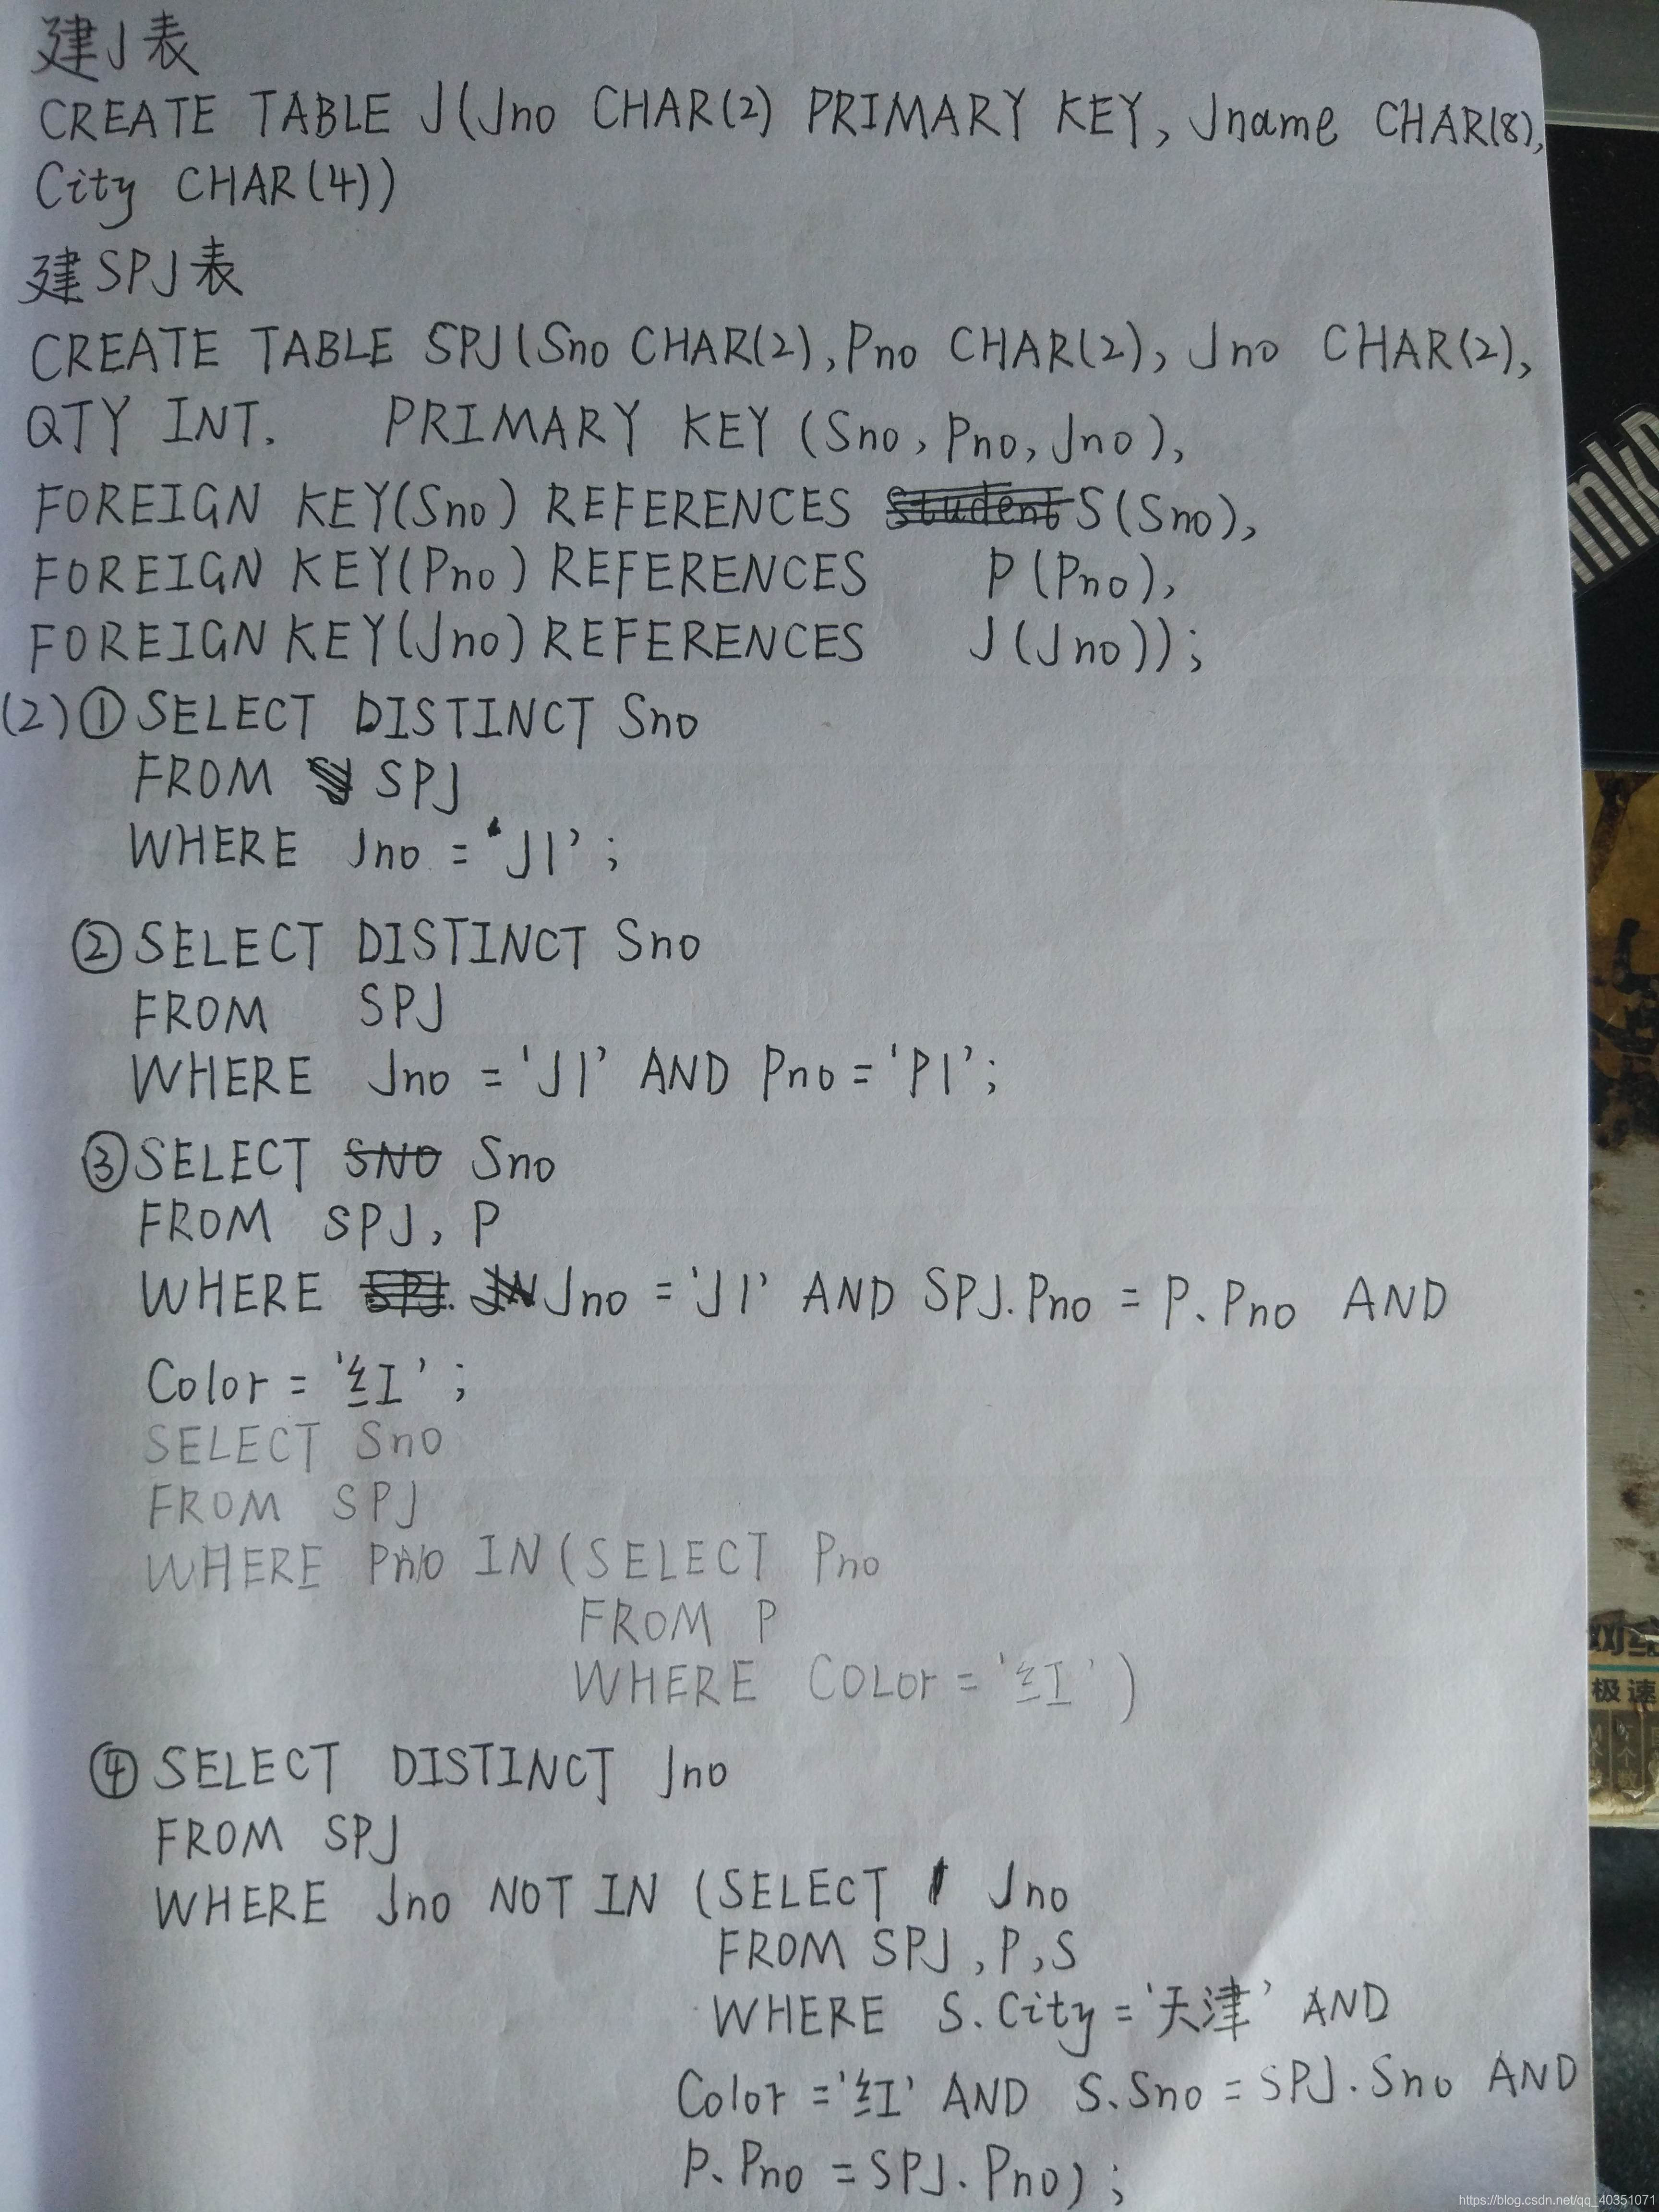 建J表
CREATE TABLE J(Jno CHAR(2) PRIMARY KEY, Jname CHAR(8),
City CHAR(4))
建SPJ表
CREATE TABLE SPJ(Sno CHAR(2), Pno CHAR(2), Jno CHAR(2),
QTY INT. PRIMARY KEY (Sno, Pno, Jno),
FOREIGN KEY(Sno) REFERENCES S(Sno),
FOREIGN KEY(Pno) REFERENCES P(Pno),
FOREIGN KEY(Jno) REFERENCES J(Jno));
(2)①SELECT DISTINCT Sno
FROM SPJ
WHERE Jno = 'J1';
②SELECT DISTINCT Sno
FROM SPJ
WHERE Jno = 'J1' AND Pno = 'P1';
③SELECT Sno
FROM SPJ, P
WHERE Jno = 'J1' AND SPJ.Pno = P.Pno AND
Color = '红';
SELECT Sno
FROM SPJ
WHERE Pno IN (SELECT Pno
FROM P
WHERE COLor = '红')
④SELECT DISTINCT Jno
FROM SPJ
WHERE Jno NOT IN (SELECT Jno
FROM SPJ, P, S
WHERE S.City = '天津' AND
Color = '红' AND S.Sno = SPJ.Sno AND
P.Pno = SPJ.Pno);
极速
https://blog.csdn.net/qq_40351071